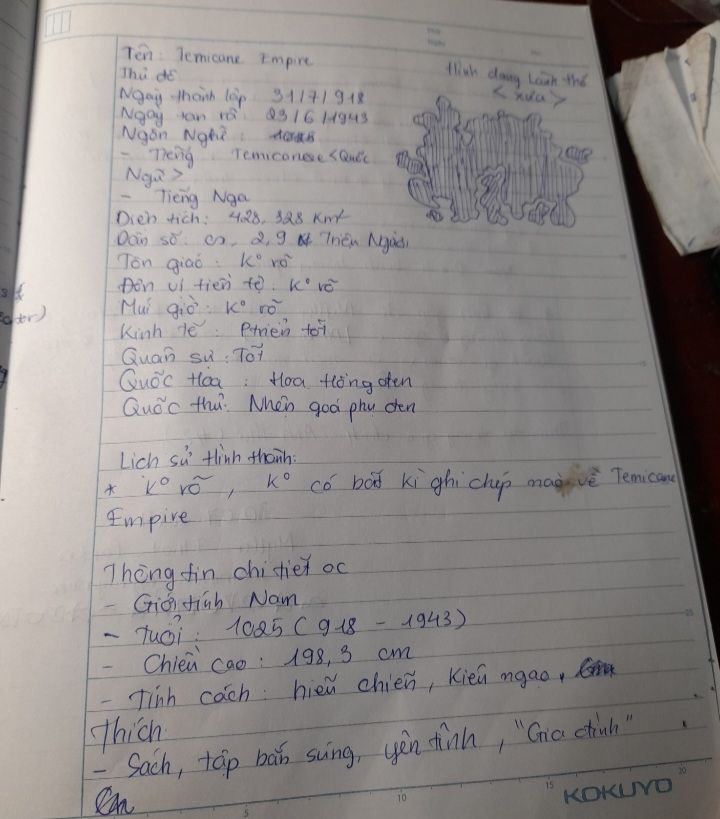 Tên: Temicane Empire
Thủ đô
Ngày thành lập: 31/7/918
Ngày tan rã: 23/6/1943
Ngôn Nghữ:
- Tiếng Temicanese <Quốc
Ngữ>
- Tiếng Nga
Diện tích: 428, 328 Km²
Dân số: 2,9 Triệu Người
Tôn giáo: K° rõ
Đơn vị tiền tệ: K° rõ
Múi giờ: K° rõ
Kinh tế: Ptriển tốt
Quân sự: Tốt
Quốc Hoa: Hoa Hồng đen
Quốc thú: Nhện goá phụ đen
Hình dạng Lãnh thổ
<xưa>
Lịch sử Hình thành:
* K° rõ, K° có bất kì ghi chép nào về Temicane
Empire
Thông tin chi tiết oc
- Giới tính Nam
- Tuổi: 1025 (918 - 1943)
- Chiều cao: 198,3 cm
- Tính cách: hiếu chiến, Kiêu ngạo,
Thích
- Sách, tập bắn súng, yên tĩnh, "Gia đình"
5 10 15 20
25
KOKUYO